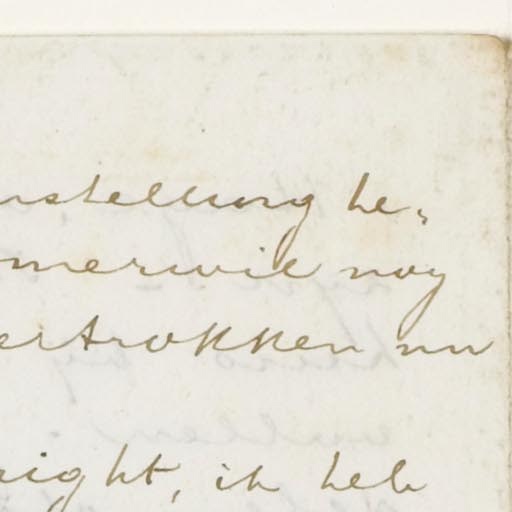 nstelling he„
merwil nog
ertrokken nu
right, ik heb